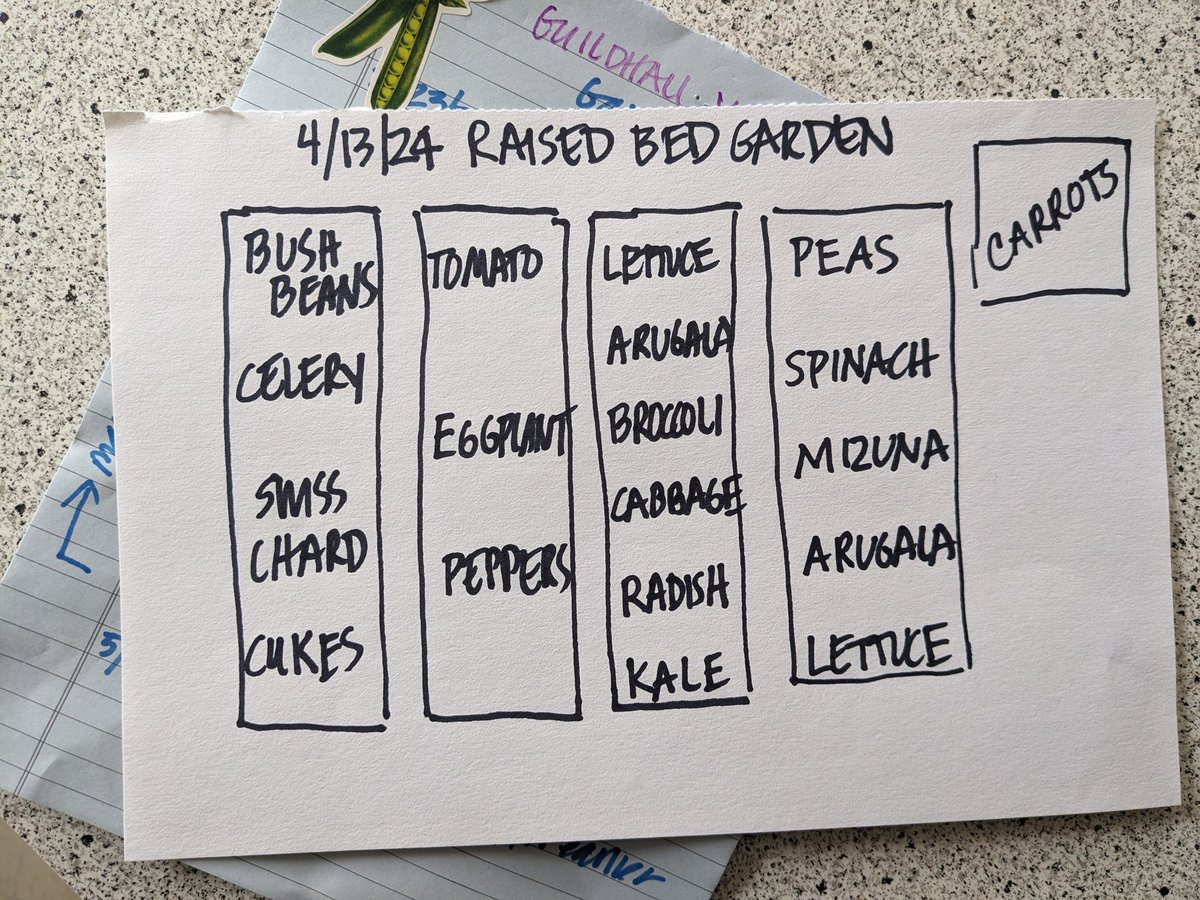 GUILDHALL
4/13/24 RAISED BED GARDEN
BUSH
BEANS
CELERY
SWISS
CHARD
CUKES
TOMATO
EGGPLANT
PEPPERS
LETTUCE
ARUGALA
BROCCOLI
CABBAGE
RADISH
KALE
PEAS
SPINACH
MIZUNA
ARUGALA
LETTUCE
CARROTS